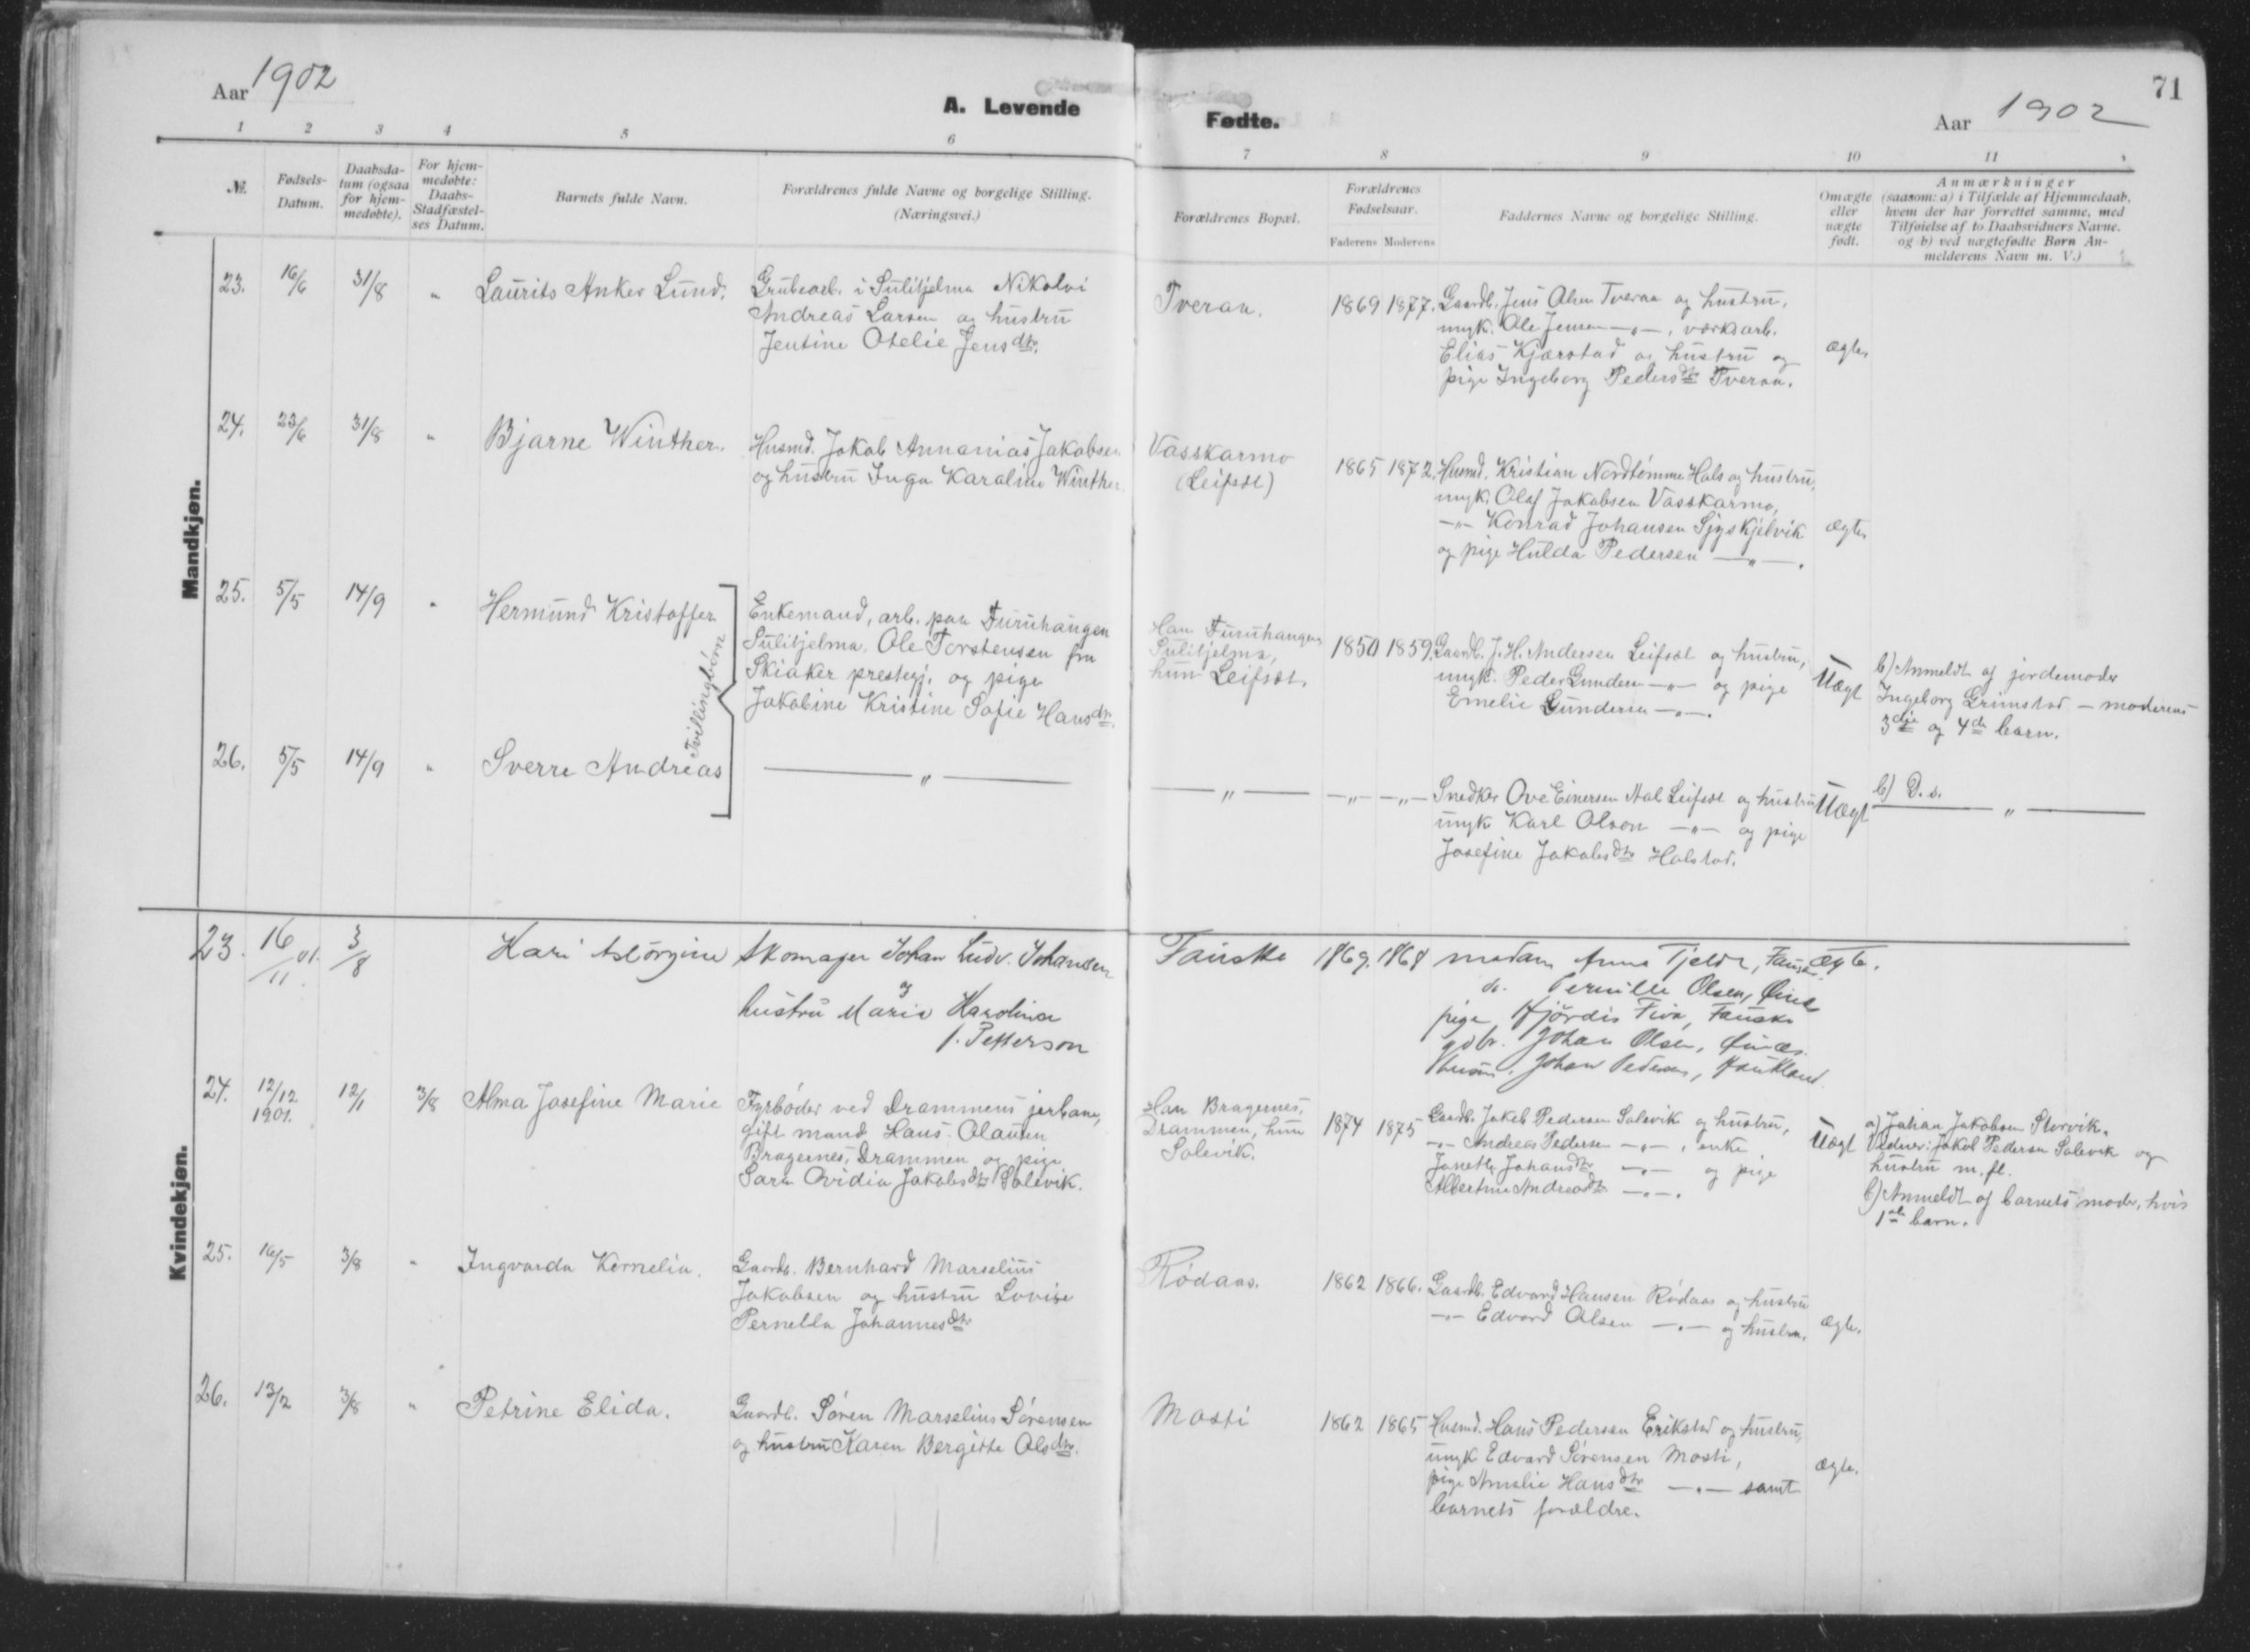 Aar 1902
A. Levende
Fødte.
Aar 1902
71
1 2 3 4 5 6 7 8 9 10 11
№.
Fødsels-Datum.
Daabsdatum (ogsaa for hjemmedøbte).
For hjemmedøbte: Daabs-Stadfæstelses Datum.
Barnets fulde Navn.
Forældrenes fulde Navne og borgelige Stilling.
(Næringsvei.)
Forældrenes Bopæl.
Forældrenes Fødselsaar.
Faderens Moderens
Faddernes Navne og borgelige Stilling.
Omægte eller uægte født.
Anmærkninger
(saasom: a) i Tilfælde af Hjemmedaab,
hvem der har forrettet samme, med
Tilføielse af to Daabsvidners Navne.
og b) ved uægtefødte Børn An-
melderens Navn m. V.)
Mandkjøn.
23. 16/6 31/8 " Laurits Anker Lund.
Grubearb. i Sulitjelma Nikolai
Andreas Larsen og hustru
Jentine Otelie Jensdtr.
Tveraa.
1869 1877.
Gaardb. Jens Olsen Tveraa og hustru,
ungk. Ole Jensen —„—, værksarb.
Elias Kjærstad og hustru og
pige Ingeborg Pedersdtr Tveraa.
ægte
24. 23/6 31/8 " Bjarne Winther.
Husmd. Jakob Annanias Jakobsen
og hustru Inga Karaline Winther
Vasskarmo
(Leifset)
1865 1872.
Husmd. Kristian Nordtømme Hals og hustru,
ungk. Olaf Jakobsen Vasskarmo,
—„— Konrad Johansen Skjelvik
og pige Hulda Pedersen —„—.
ægte
25. 5/5 14/9 " Hermund Kristoffer
Tvillingbørn
Enkemand, arb. paa Furuhaugen
Sulitjelma, Ole Torstensen fra
Skiaker prestegj. og pige
Jakobine Kristine Sofie Hansdtr.
Han Furuhaugen
Sulitjelma,
hun Leifset.
1850 1859.
Gaardb. J. H. Andersen Leifset og hustru,
ungk. Peder Gundersen —„— og pige
Emelie Gundersen —„—.
Uægt
b) Anmeldt af jordemoder
Ingeborg Grimstad – moderens
3die og 4de barn.
26. 5/5 14/9 " Sverre Andreas
— „ —
— „ — —„— —„—
Snedker Ove Einersen Leifset og hustru
ungk Karl Olson —„— og pige
Josefine Jakobsdtr Halstad.
Uægt
b) D.s. — „ —
Kvindekjøn.
23. 16/11 01. 3/8 Kari Astorgine
Skomager Johan Ludv. Johansen
og
hustru Marie Karolina
f. Petterson
Fauske
1869. 1868
madam Anna Tjeldr, Fauske
do. Pernille Olsen, Øines
pige Hjørdis Fiva, Fauske
gdbr. Johan Olsen, Øines
husm. Johan Pedersen, Haukland.
ægte.
24. 12/12 1901. 12/1 3/8 Alma Josefine Marie
Fyrbøder ved Drammens jerbane,
gift mand Hans Olausen
Bragernes, Drammen og pige
Sara Ovidia Jakobsdtr Solevik.
Han Bragernes,
Drammen, hun
Solevik.
1874 1875
Gaardb. Jakob Pedersen Solevik og hustru,
—„— Andreas Pedersen —„—, enke
Janethe Johansdtr —„— og pige
Albertine Andreasdtr —„—.
Uægt
a) Johan Jakobsen Storvik.
Vidner: Jakob Pedersen Solevik og
hustru m. fl.
b) Anmeldt af barnets moder, hvis
1ste barn.
25. 16/5 3/8 " Ingvarda Kornelia.
Gaardb. Bernhard Marselius
Jakobsen og hustru Lovise
Pernella Johannesdtr
Rødaas.
1862 1866.
Gaardb. Edvard Hansen Rødaas og hustru
—„— Edvard Olsen —„— og hustru.
ægte.
26. 13/2 3/8 " Petrine Elida.
Gaardb. Søren Marselius Sørensen
og hustru Karen Bergitte Olsdtr.
Mosti
1862 1865
Husmd. Hans Pedersen Erikstad og hustru,
ungk Edvard Sørensen Mosti,
pige Amalie Hansdtr —„— samt
barnets forældre.
ægte.